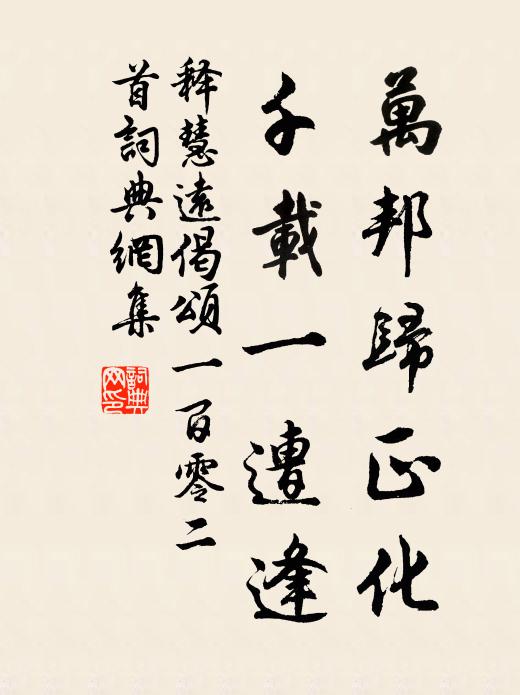 萬邦歸正化
千載一遭逢
释慧遠偈頌一百零二
首詞典網集
詞典
网印